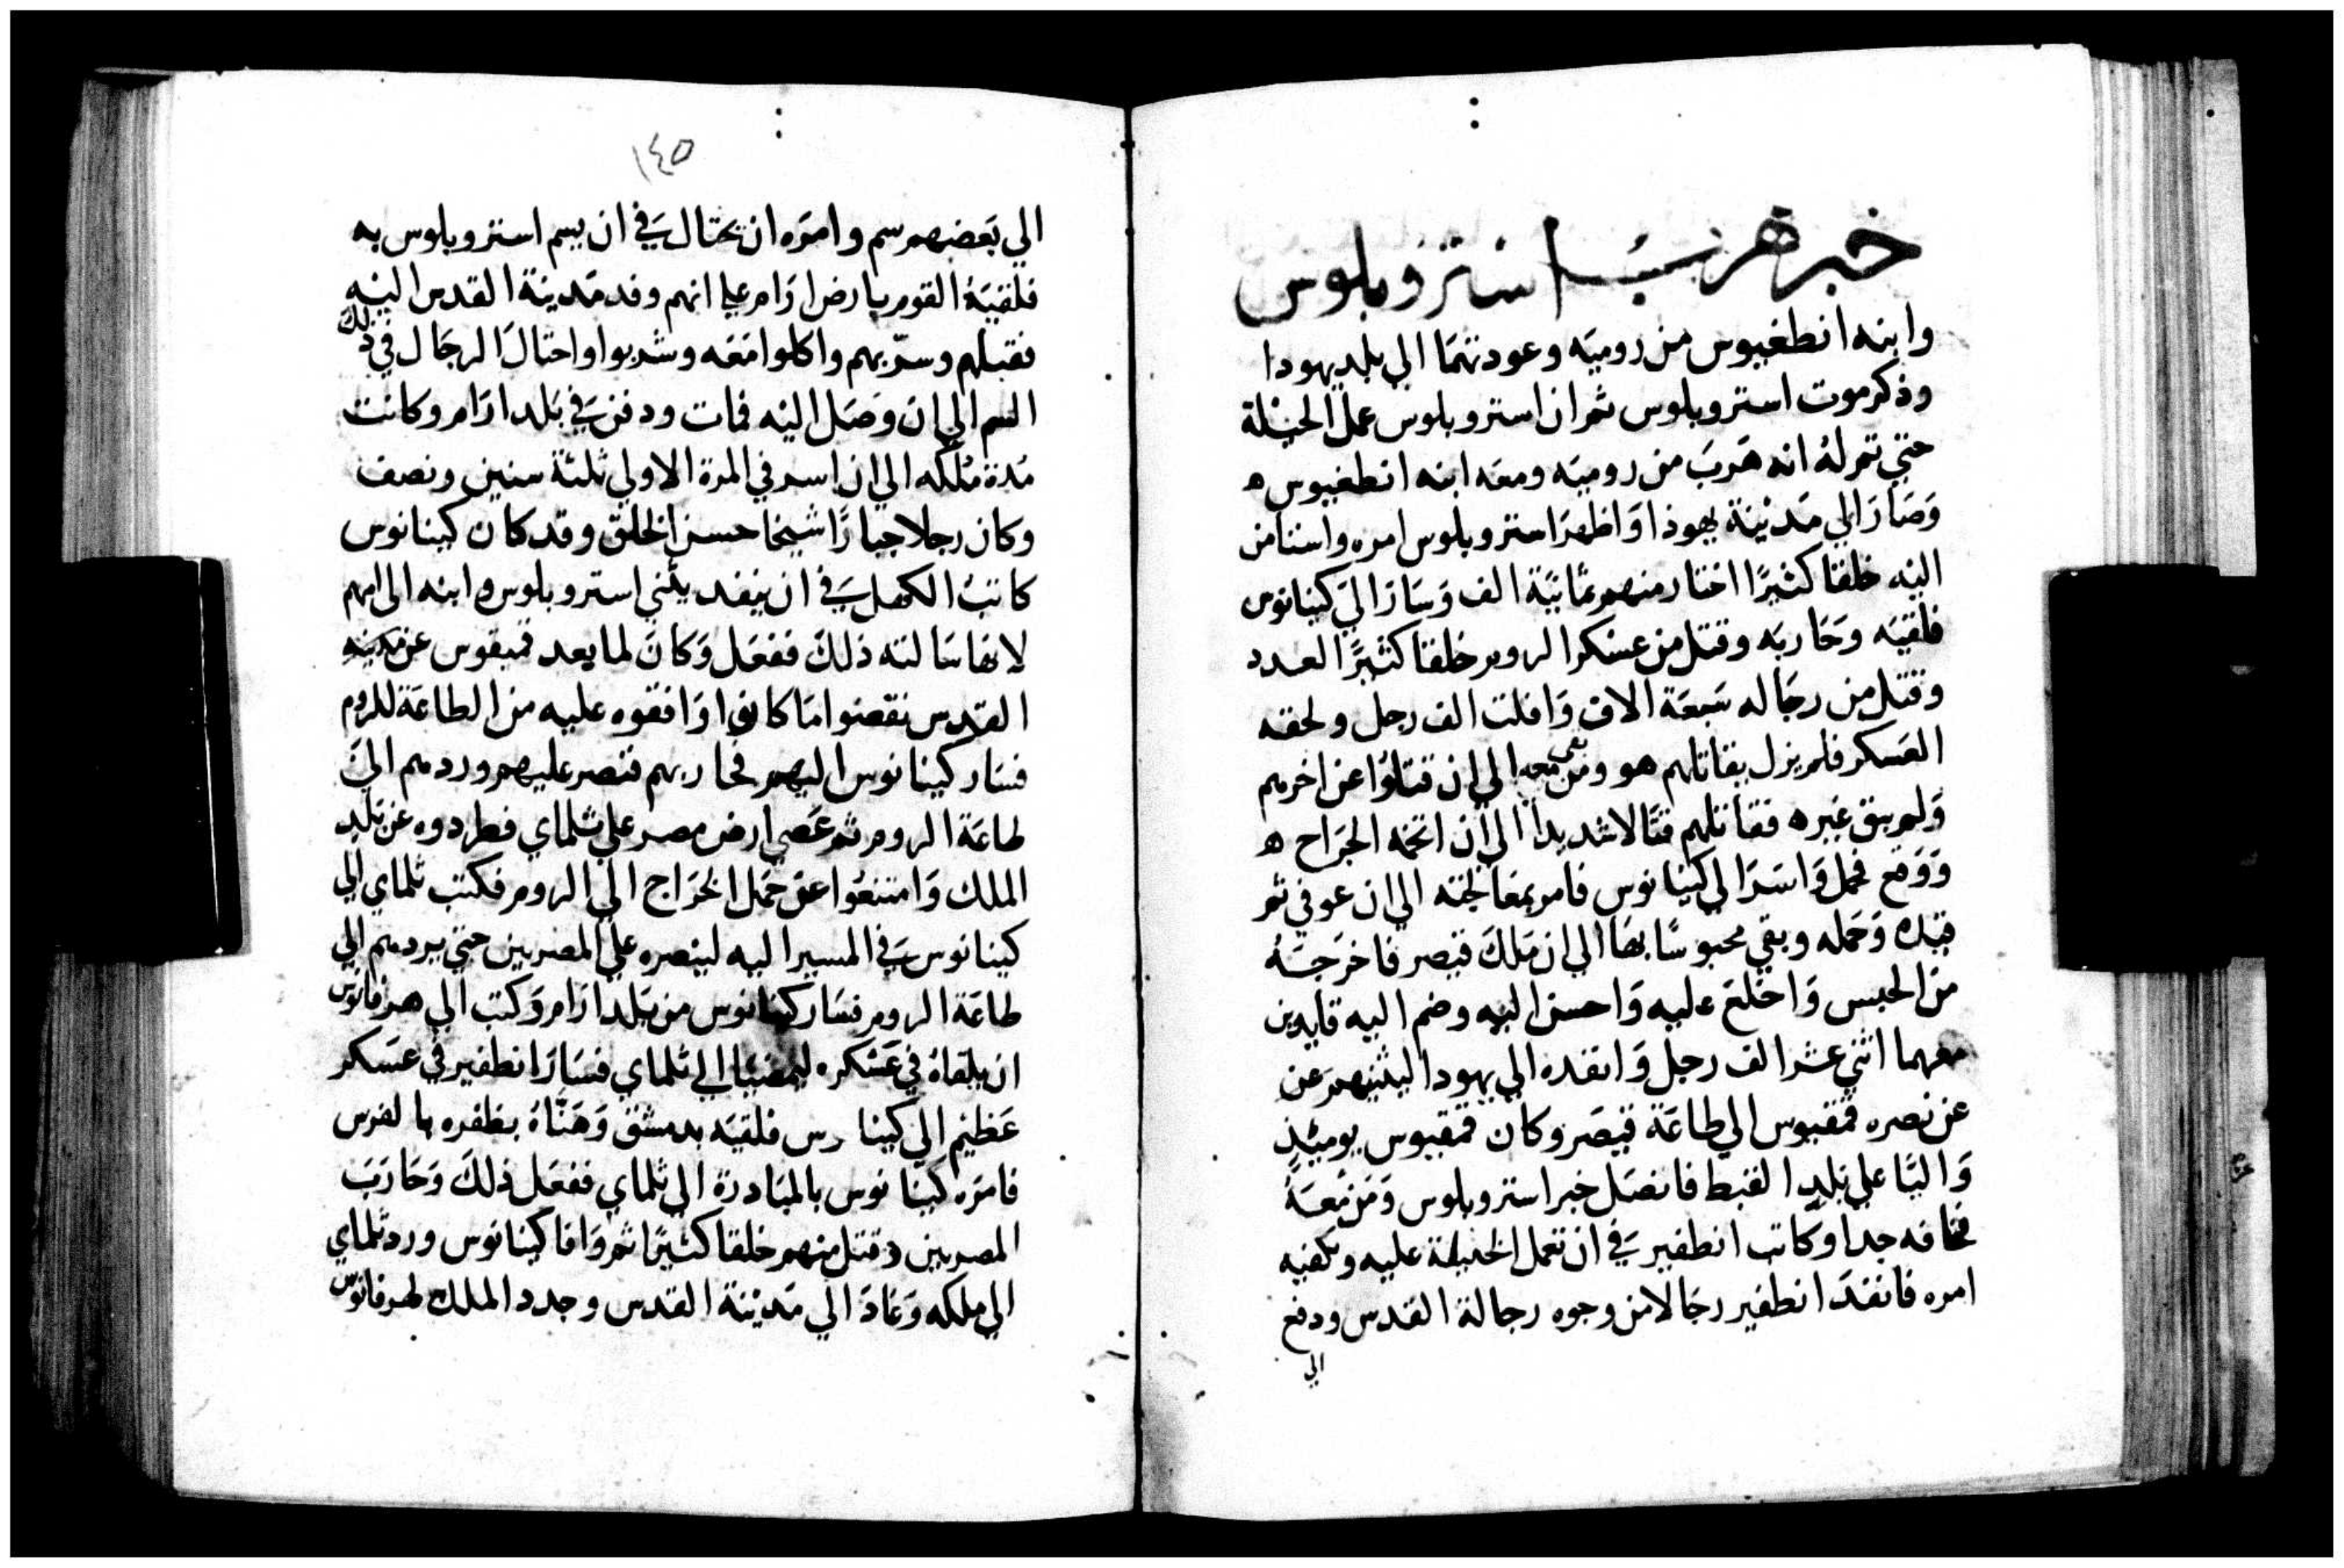 خبر هرب استروبلوس
وابنه انطغبوس من روميه وعودتهما الي بلد يهودا
وذكر موت استروبلوس ثم ان استروبلوس عمل الحيلة
حتي تم له انه هرب من روميه ومعه ابنه انطغبوس ه
وصار الي مدينة يهوذا واظهر استروبلوس امره واستامن
اليه خلقا كثيرًا اختار منهم ثمانية الف وسار الي كينانوس
فلقيه وحاربه وقتل من عسكر الروم خلقا كثيرًا العدد
وقتل من رجاله سبعة الاف وافلت الف رجل ولحقه
العسكر فلم يزل يقاتلهم هو ومن بقي معه الي ان قتلوا عن اخرهم
ولم يبق غيره فقاتلهم قتالا شديدا الي ان اثخنه الجراح ه
ووقع فحمل واسر الي كينانوس فامر بمعالجته الي ان عوفي ثم
قيده وحمله وبقي محبوسًا بها الي ان ملك قيصر فاخرجه
من الحبس واخلع عليه واحسن اليه وضم اليه قايدين
معهما اثني عشر الف رجل وانفده الي يهودا ليثنيهم عن
عن نصره فمقيوس الي طاعة قيصر وكان فمقيوس يوميئذ
واليًا علي بلد القبط فاتصل خبر استروبلوس ومن معه
فخافه جدا وكاتب انطفير في ان تعمل الحيلة عليه وتكفيه
امره فانفد انطفير رجالا من وجوه رجالة القدس ودفع
الي
١٤٥
الي بعضهم سم وامره ان يحتال في ان يسم استروبلوس به
فلقيه القوم بارض ارام علي انهم وفد مدينة القدس اليه
فقبلهم وسرّ بهم واكلوا معه وشربوا واحتال الرجال في ذلك
السم الي ان وصل اليه فمات ودفن في بلد ارام وكانت
مدة ملكه الي ان اسر في المرة الاولي ثلثة سنين ونصف
وكان رجلا جبارًا شيخا حسن الخلق وقد كان كينانوس
كاتب الكهل في ان ينفد بابني استروبلوس وابنه الي امهم
لانها سالته ذلك ففعل وكان لما بعد فمبقوس عن مدينه
القدس نقضوا ما كانوا وافقوه عليه من الطاعة للروم
فسار كينانوس اليهم فحاربهم فنصر عليهم وردهم الي
طاعة الروم ثم عصي ارض مصر علي ثلماي فطردوه عن بلد
الملك وامتنعوا عن حمل الخراج الي الروم فكتب ثلماي الي
كينانوس في المسير اليه لينصره علي المصريين حتي يردهم الي
طاعة الروم فسار كينانوس من بلد ارام وكتب الي هرفانوس
ان يلقاه في عسكره ليمضيا الي ثلماي فسار انطفير في عسكر
عظيم الي كينا رس فلقيه بدمشق وهنّاه بظفره بالفرس
فامره كينانوس بالمبادرة الي ثلماي ففعل ذلك وحارب
المصريين وقتل منهم خلقا كثيرًا ثم وافا كينانوس ورد ثلماي
الي ملكه وعاد الي مدينة القدس وجدد الملك لهرفانوس